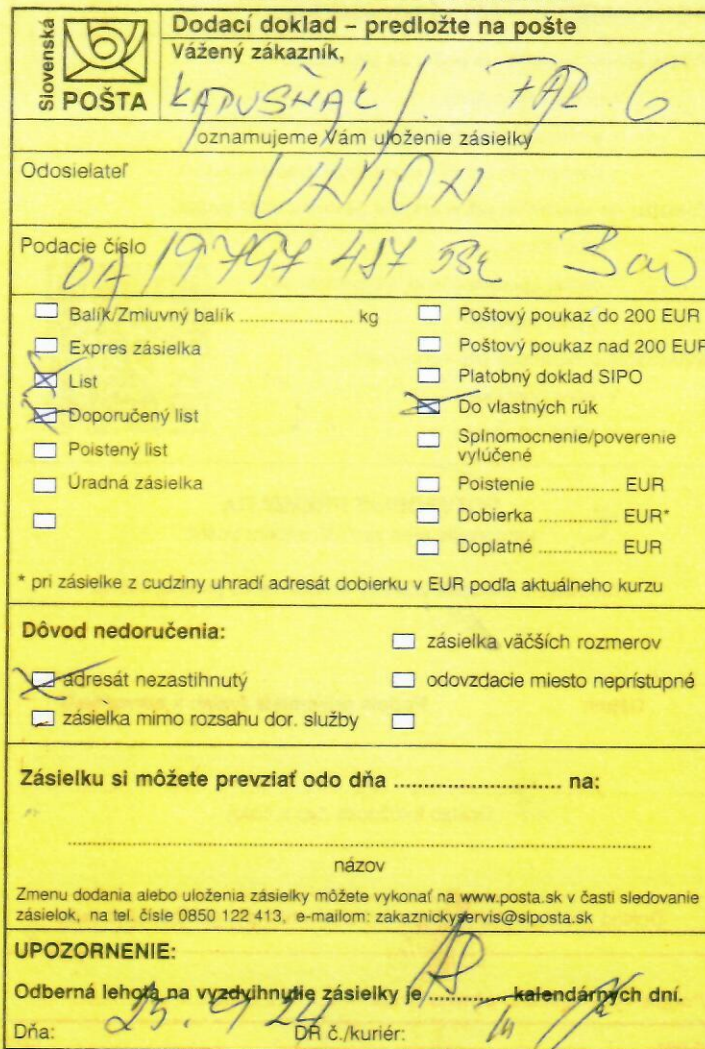 Slovenská
POŠTA
Dodací doklad – predložte na pošte
Vážený zákazník,
oznamujeme Vám uloženie zásielky
Odosielateľ
UNION
Podacie číslo
Balík/Zmluvný balík .................... kg
Expres zásielka
List
Doporučený list
Poistený list
Úradná zásielka
Poštový poukaz do 200 EUR
Poštový poukaz nad 200 EUR
Platobný doklad SIPO
Do vlastných rúk
Splnomocnenie/poverenie
vylúčené
Poistenie .............. EUR
Dobierka .............. EUR*
Doplatné .............. EUR
* pri zásielke z cudziny uhradí adresát dobierku v EUR podľa aktuálneho kurzu
Dôvod nedoručenia:
adresát nezastihnutý
zásielka mimo rozsahu dor. služby
zásielka väčších rozmerov
odovzdacie miesto neprístupné
Zásielku si môžete prevziať odo dňa ............................ na:
názov
Zmenu dodania alebo uloženia zásielky môžete vykonať na www.posta.sk v časti sledovanie
zásielok, na tel. čísle 0850 122 413, e-mailom: zakaznickyservis@slposta.sk
UPOZORNENIE:
Odberná lehota na vyzdvihnutie zásielky je .............. kalendárnych dní.
Dňa: 25. 9 24 DR č./kuriér: